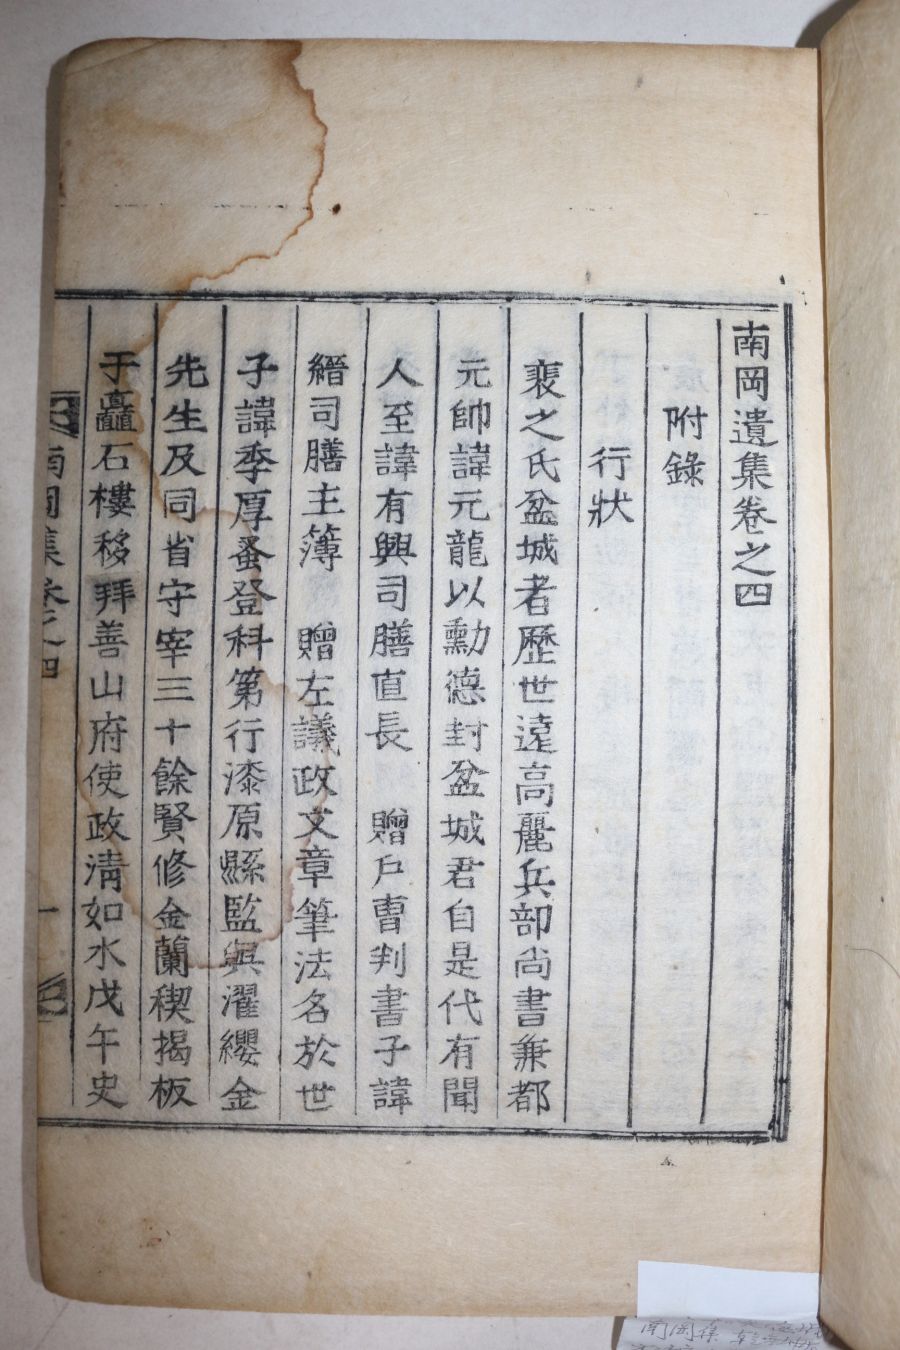 南岡遺集卷之四
附錄
行狀
裴之氏盆城者歷世遠高麗兵部尙書兼都
元帥諱元龍以勳德封盆城君自是代有聞
人至諱有興司膳直長 贈戶曹判書子諱
縉司膳主簿 贈左議政文章筆法名於世
子諱季厚蚤登科第行漆原縣監與濯纓金
先生及同省守宰三十餘賢修金蘭稧揭板
于矗石樓移拜善山府使政淸如水戊午史
南岡集卷之四
一
南岡集